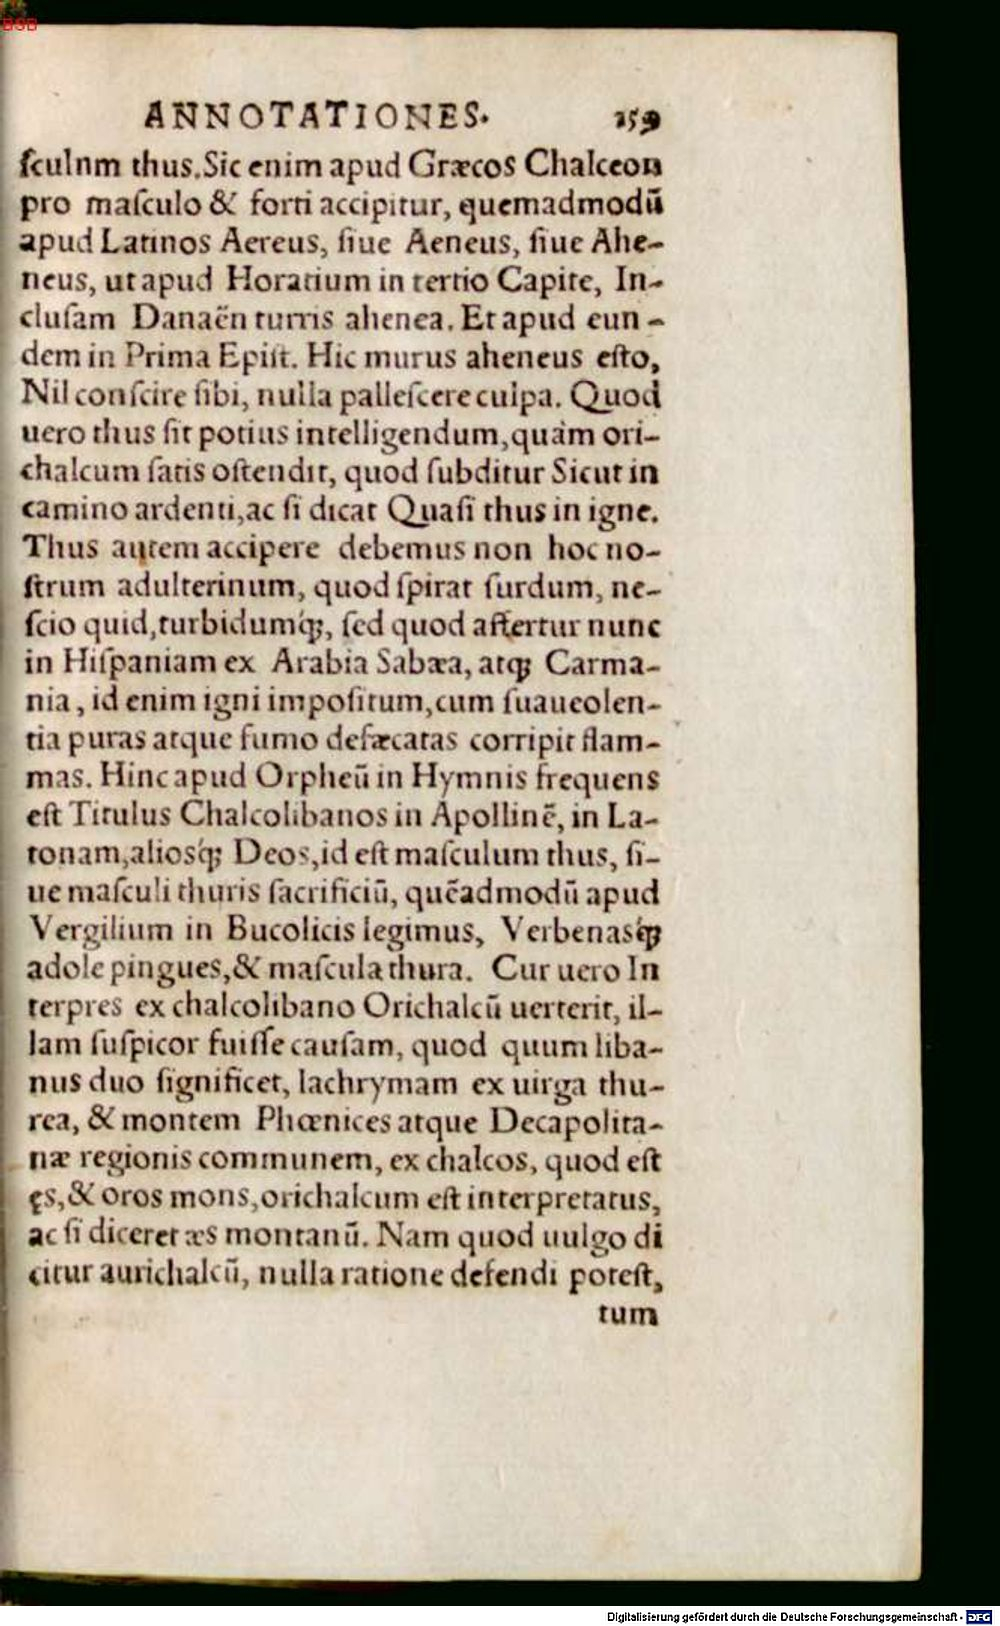 BSB
ANNOTATIONES. 159
ſculnm thus. Sic enim apud Græcos Chalceon
pro maſculo & forti accipitur, quemadmodū
apud Latinos Aereus, ſiue Aeneus, ſiue Ahe-
neus, ut apud Horatium in tertio Capite, In-
cluſam Danaën turris ahenea. Et apud eun-
dem in Prima Epiſt. Hic murus aheneus eſto,
Nil conſcire ſibi, nulla palleſcere culpa. Quod
uero thus ſit potius intelligendum, quàm ori-
chalcum ſatis oſtendit, quod ſubditur Sicut in
camino ardenti, ac ſi dicat Quaſi thus in igne.
Thus autem accipere debemus non hoc no-
ſtrum adulterinum, quod ſpirat ſurdum, ne-
ſcio quid, turbidumq́;, ſed quod affertur nunc
in Hiſpaniam ex Arabia Sabæa, atq; Carma-
nia, id enim igni impoſitum, cum ſuaueolen-
tia puras atque fumo defæcatas corripit flam-
mas. Hinc apud Orpheū in Hymnis frequens
eſt Titulus Chalcolibanos in Apollinē, in La-
tonam, aliosq́; Deos, id eſt maſculum thus, ſi-
ue maſculi thuris ſacrificiū, quēadmodū apud
Vergilium in Bucolicis legimus, Verbenasq́;
adole pingues, & maſcula thura. Cur uero In
terpres ex chalcolibano Orichalcū uerterit, il-
lam ſuſpicor fuiſſe cauſam, quod quum liba-
nus duo ſignificet, lachrymam ex uirga thu-
rea, & montem Phœnices atque Decapolita-
næ regionis communem, ex chalcos, quod eſt
ęs, & oros mons, orichalcum eſt interpretatus,
ac ſi diceret æs montanū. Nam quod uulgo di
citur aurichalcū, nulla ratione defendi poteſt,
tum
Digitalisierung gefördert durch die Deutsche Forschungsgemeinschaft - DFG